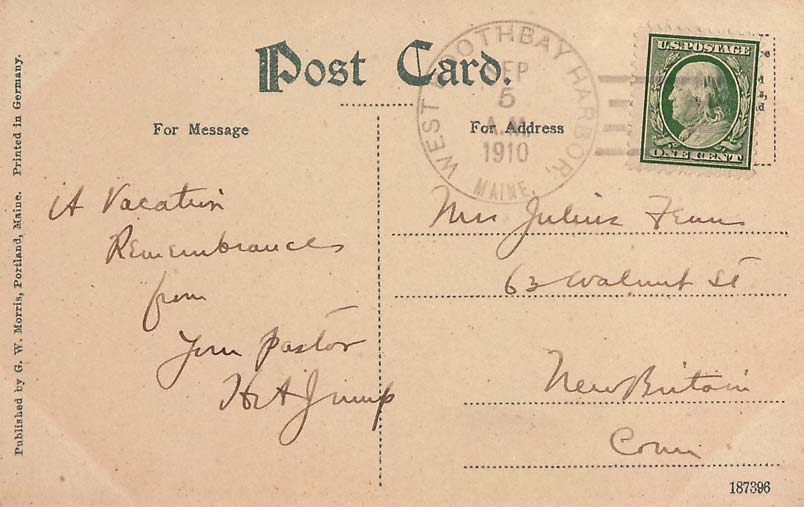 Post Card.
For Message
For Address
WEST BOOTHBAY HARBOR,
SEP
5
A.M.
1910
MAINE.
U.S. POSTAGE
ONE CENT
A Vacation
Remembrances
from
Your pastor
H A Jump
Mrs Julius
63 Walnut St
New Britain
Conn
Published by G. W. Morris, Portland, Maine. Printed in Germany.
187396